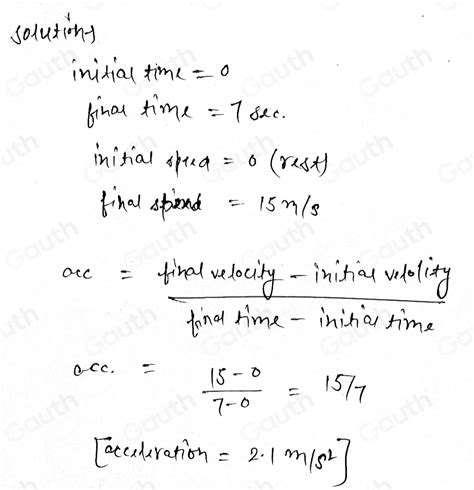 solutions
initial time = 0
final time = 7 sec.
initial speed = 0 (rest)
final speed = 15 m/s
acc = final velocity - initial velocity
final time - initial time
acc. = 15-0 / 7-0 = 15/7
[acceleration = 2.1 m/s²]
Gauth